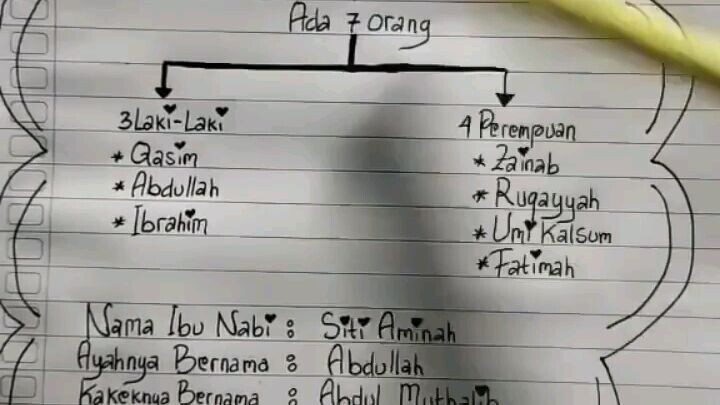 Ada 7 orang
3 Laki-Laki
* Qasim
* Abdullah
* Ibrahim
4 Perempuan
* Zainab
* Ruqayyah
* Umi Kalsum
* Fatimah
Nama Ibu Nabi : Siti Aminah
Ayahnya Bernama : Abdullah
Kakeknya Bernama : Abdul Muthalib